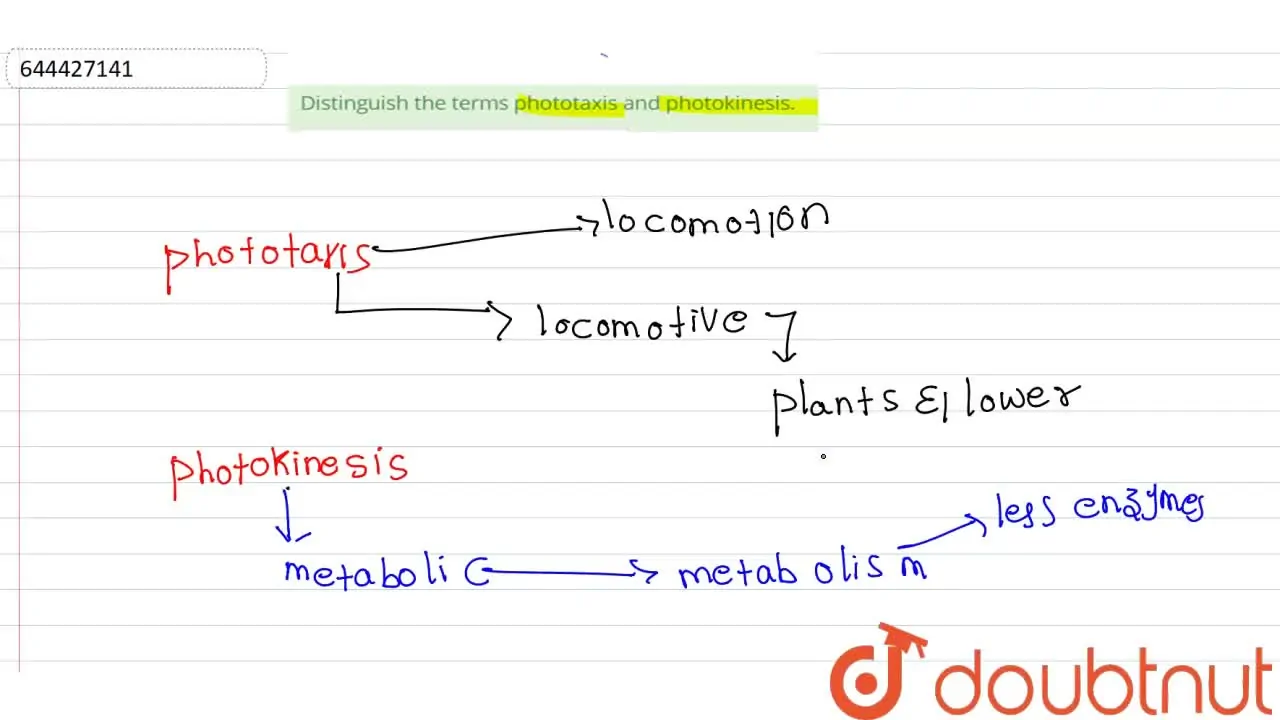 644427141
Distinguish the terms phototaxis and photokinesis.
locomotion
phototaxis
locomotive
plants & lower
photokinesis
less enzymes
metabolic
metabolism
doubtnut